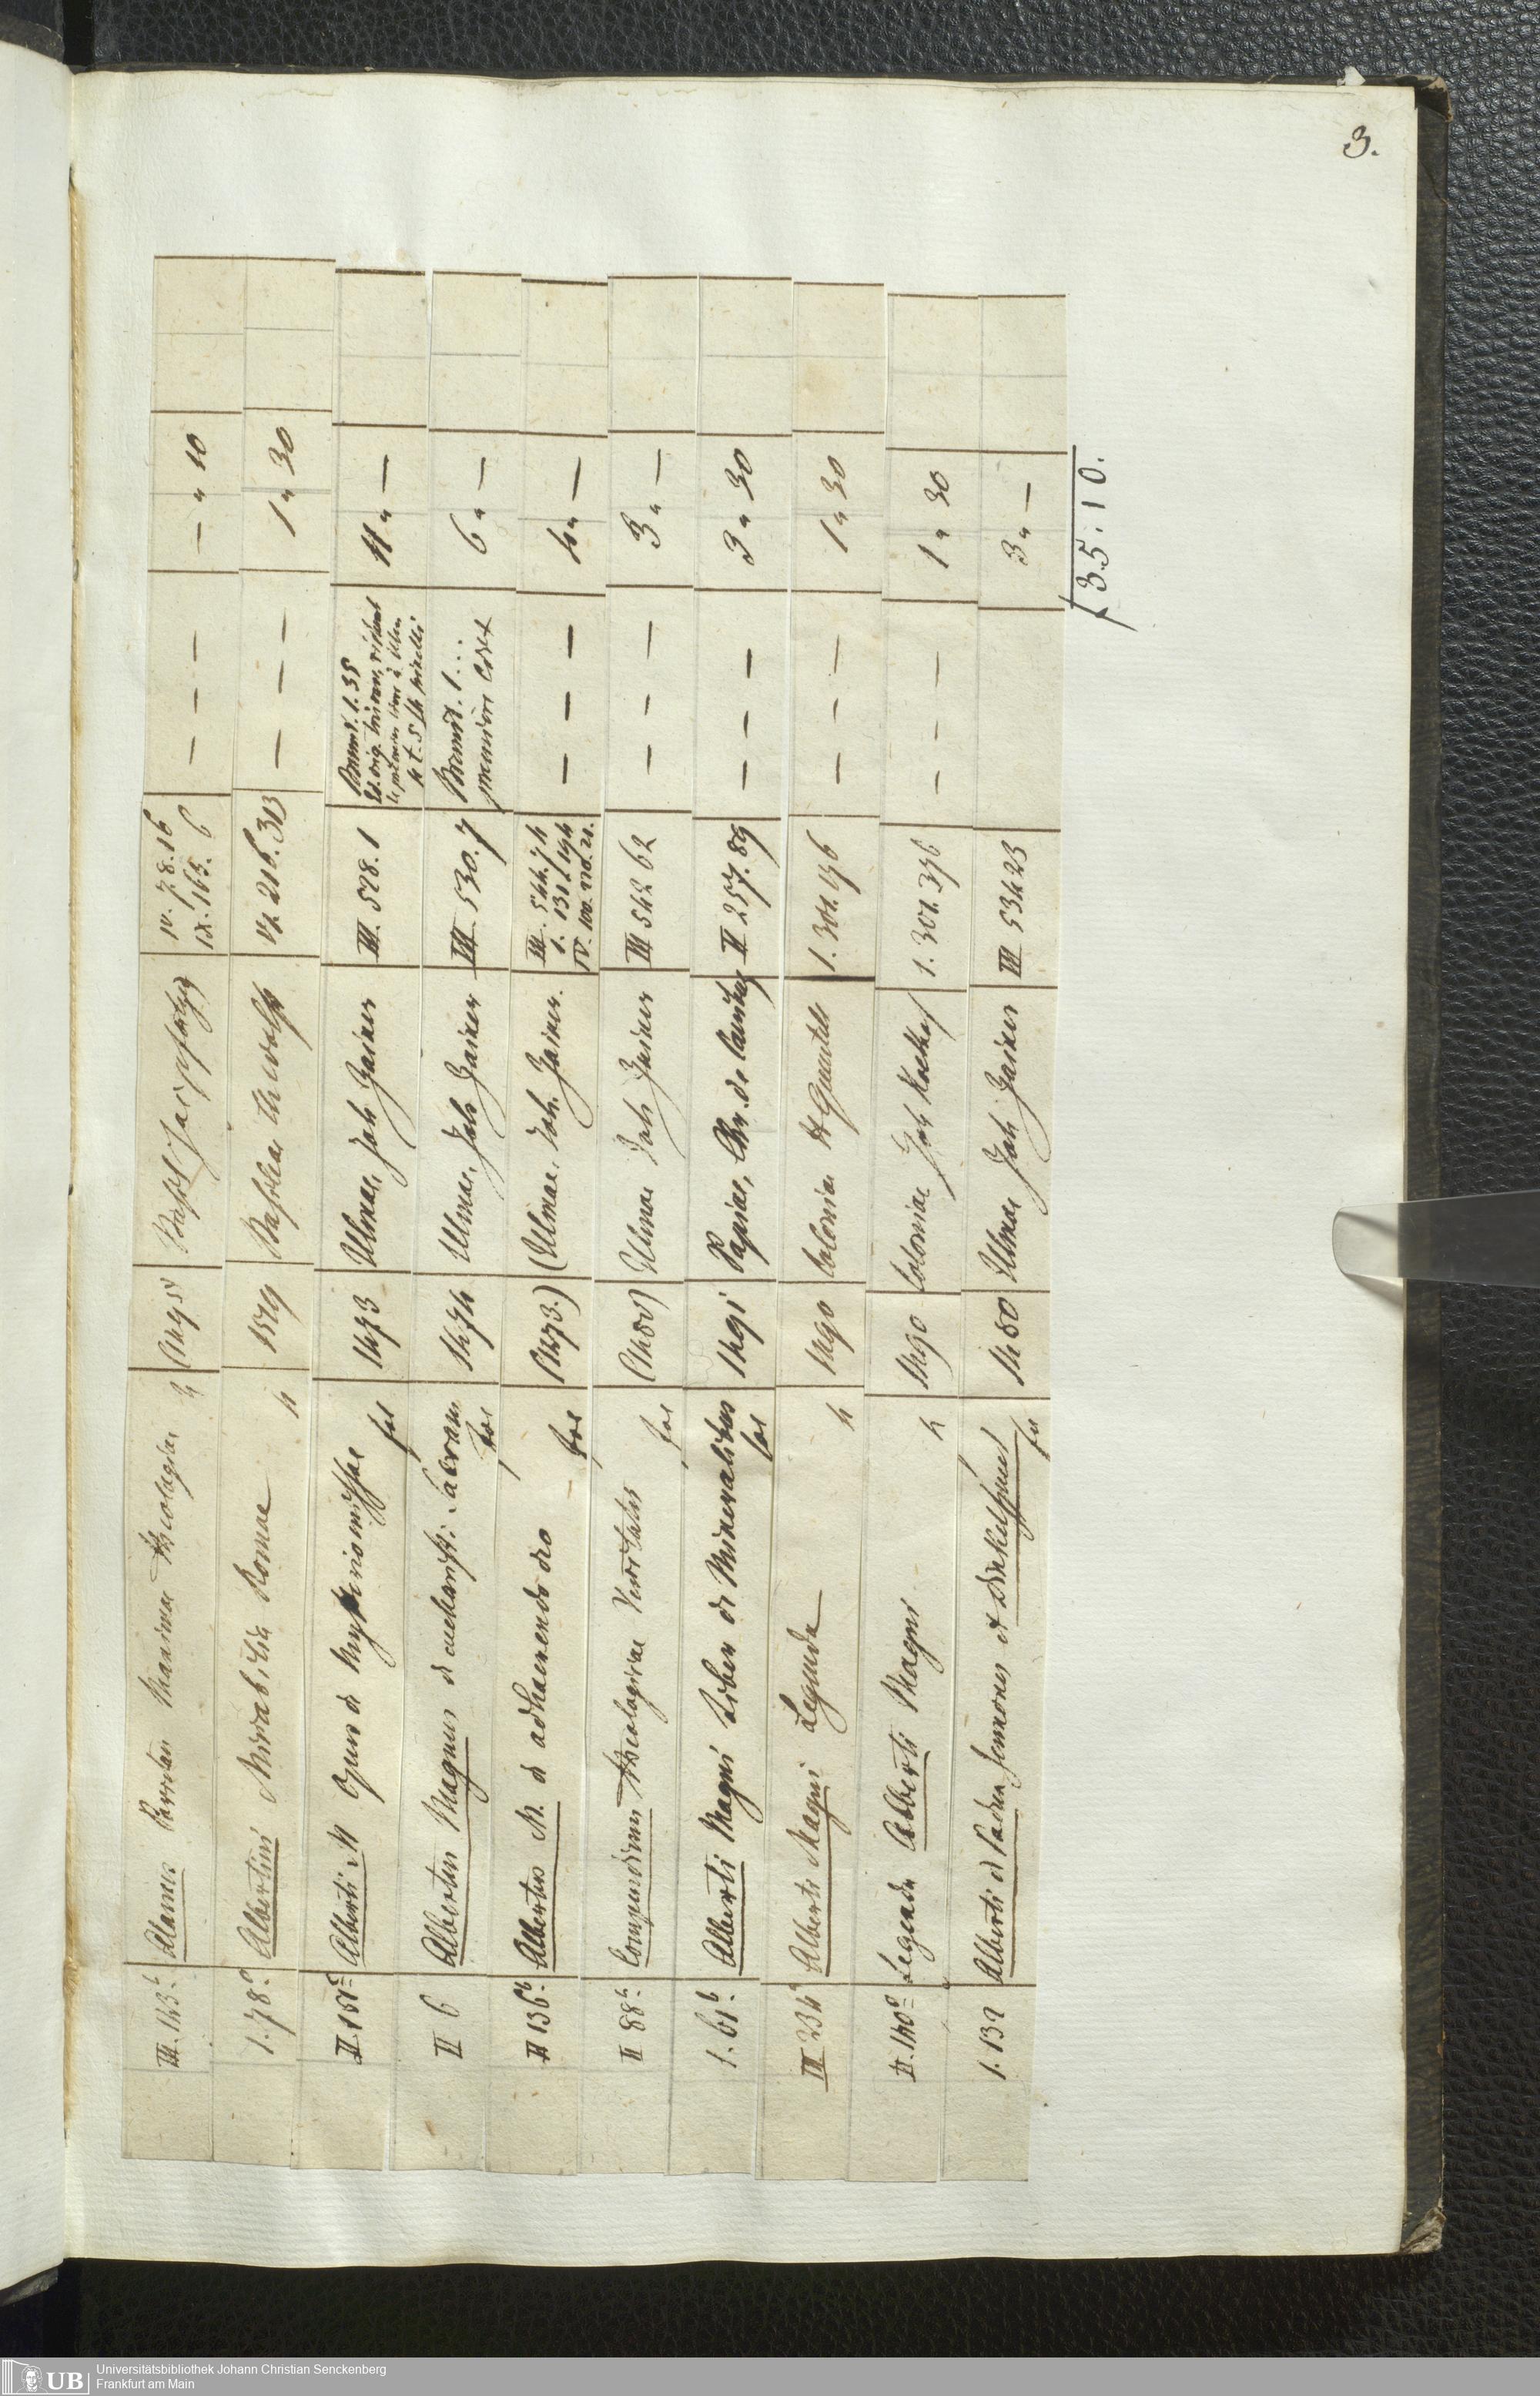 3.
III. 143.b Alanus Maximae theologiae 4 (1495) Basel Jac. v Pfortzen IV. 78.16 IX. 163. 6 — — — — " 10
1. 78.a Albertini Mirabilia Romae 4 1519 Basileae th wolff VI. 216. 313 — — — 1 " 30
II. 151a Alberti M Opus de Mysterio missae fol 1473 Ulmae, Joh Zainer III. 528. 1 Brunet. 1. 35 11 " —
II 6 Albertus Magnus de eucharisti: Sacram fol 1474 Ulmae, Joh Zainer III. 530. 7 Brunet. 1 . . . 6 " —
II 136b. Albertus M. de adhaerendo deo fol (1473.) (Ulmae, Joh. Zainer. III. 544. 74 1. 131 / 194 IV. 100. 220. 21. — — — 4 " —
II 88b. Compendium theologicae Veritatis fol (1480) Ulmae Joh Zainer III 542 62 — — — 3 " —
1. 61.b. Alberti Magni Liber de Mineralibus fol 1491 Papiae, Chr. de Canibus II 257. 89 — — — 3 " 30
III 234a Alberti Magni Legenda 4 1490 Coloniae H Quentell 1. 301. 196 — — — 1 " 30
II. 140a Legenda Alberti Magni 4 1490 Coloniae Joh Koelhof 1. 301. 396 — — — 1 " 30
1. 132 Alberti de Padua Sermones et Dinkelspuel fol 1480 Ulmae Joh Zainer III 534 23 3 " —
f 35. 10.
UB
Universitätsbibliothek Johann Christian Senckenberg
Frankfurt am Main